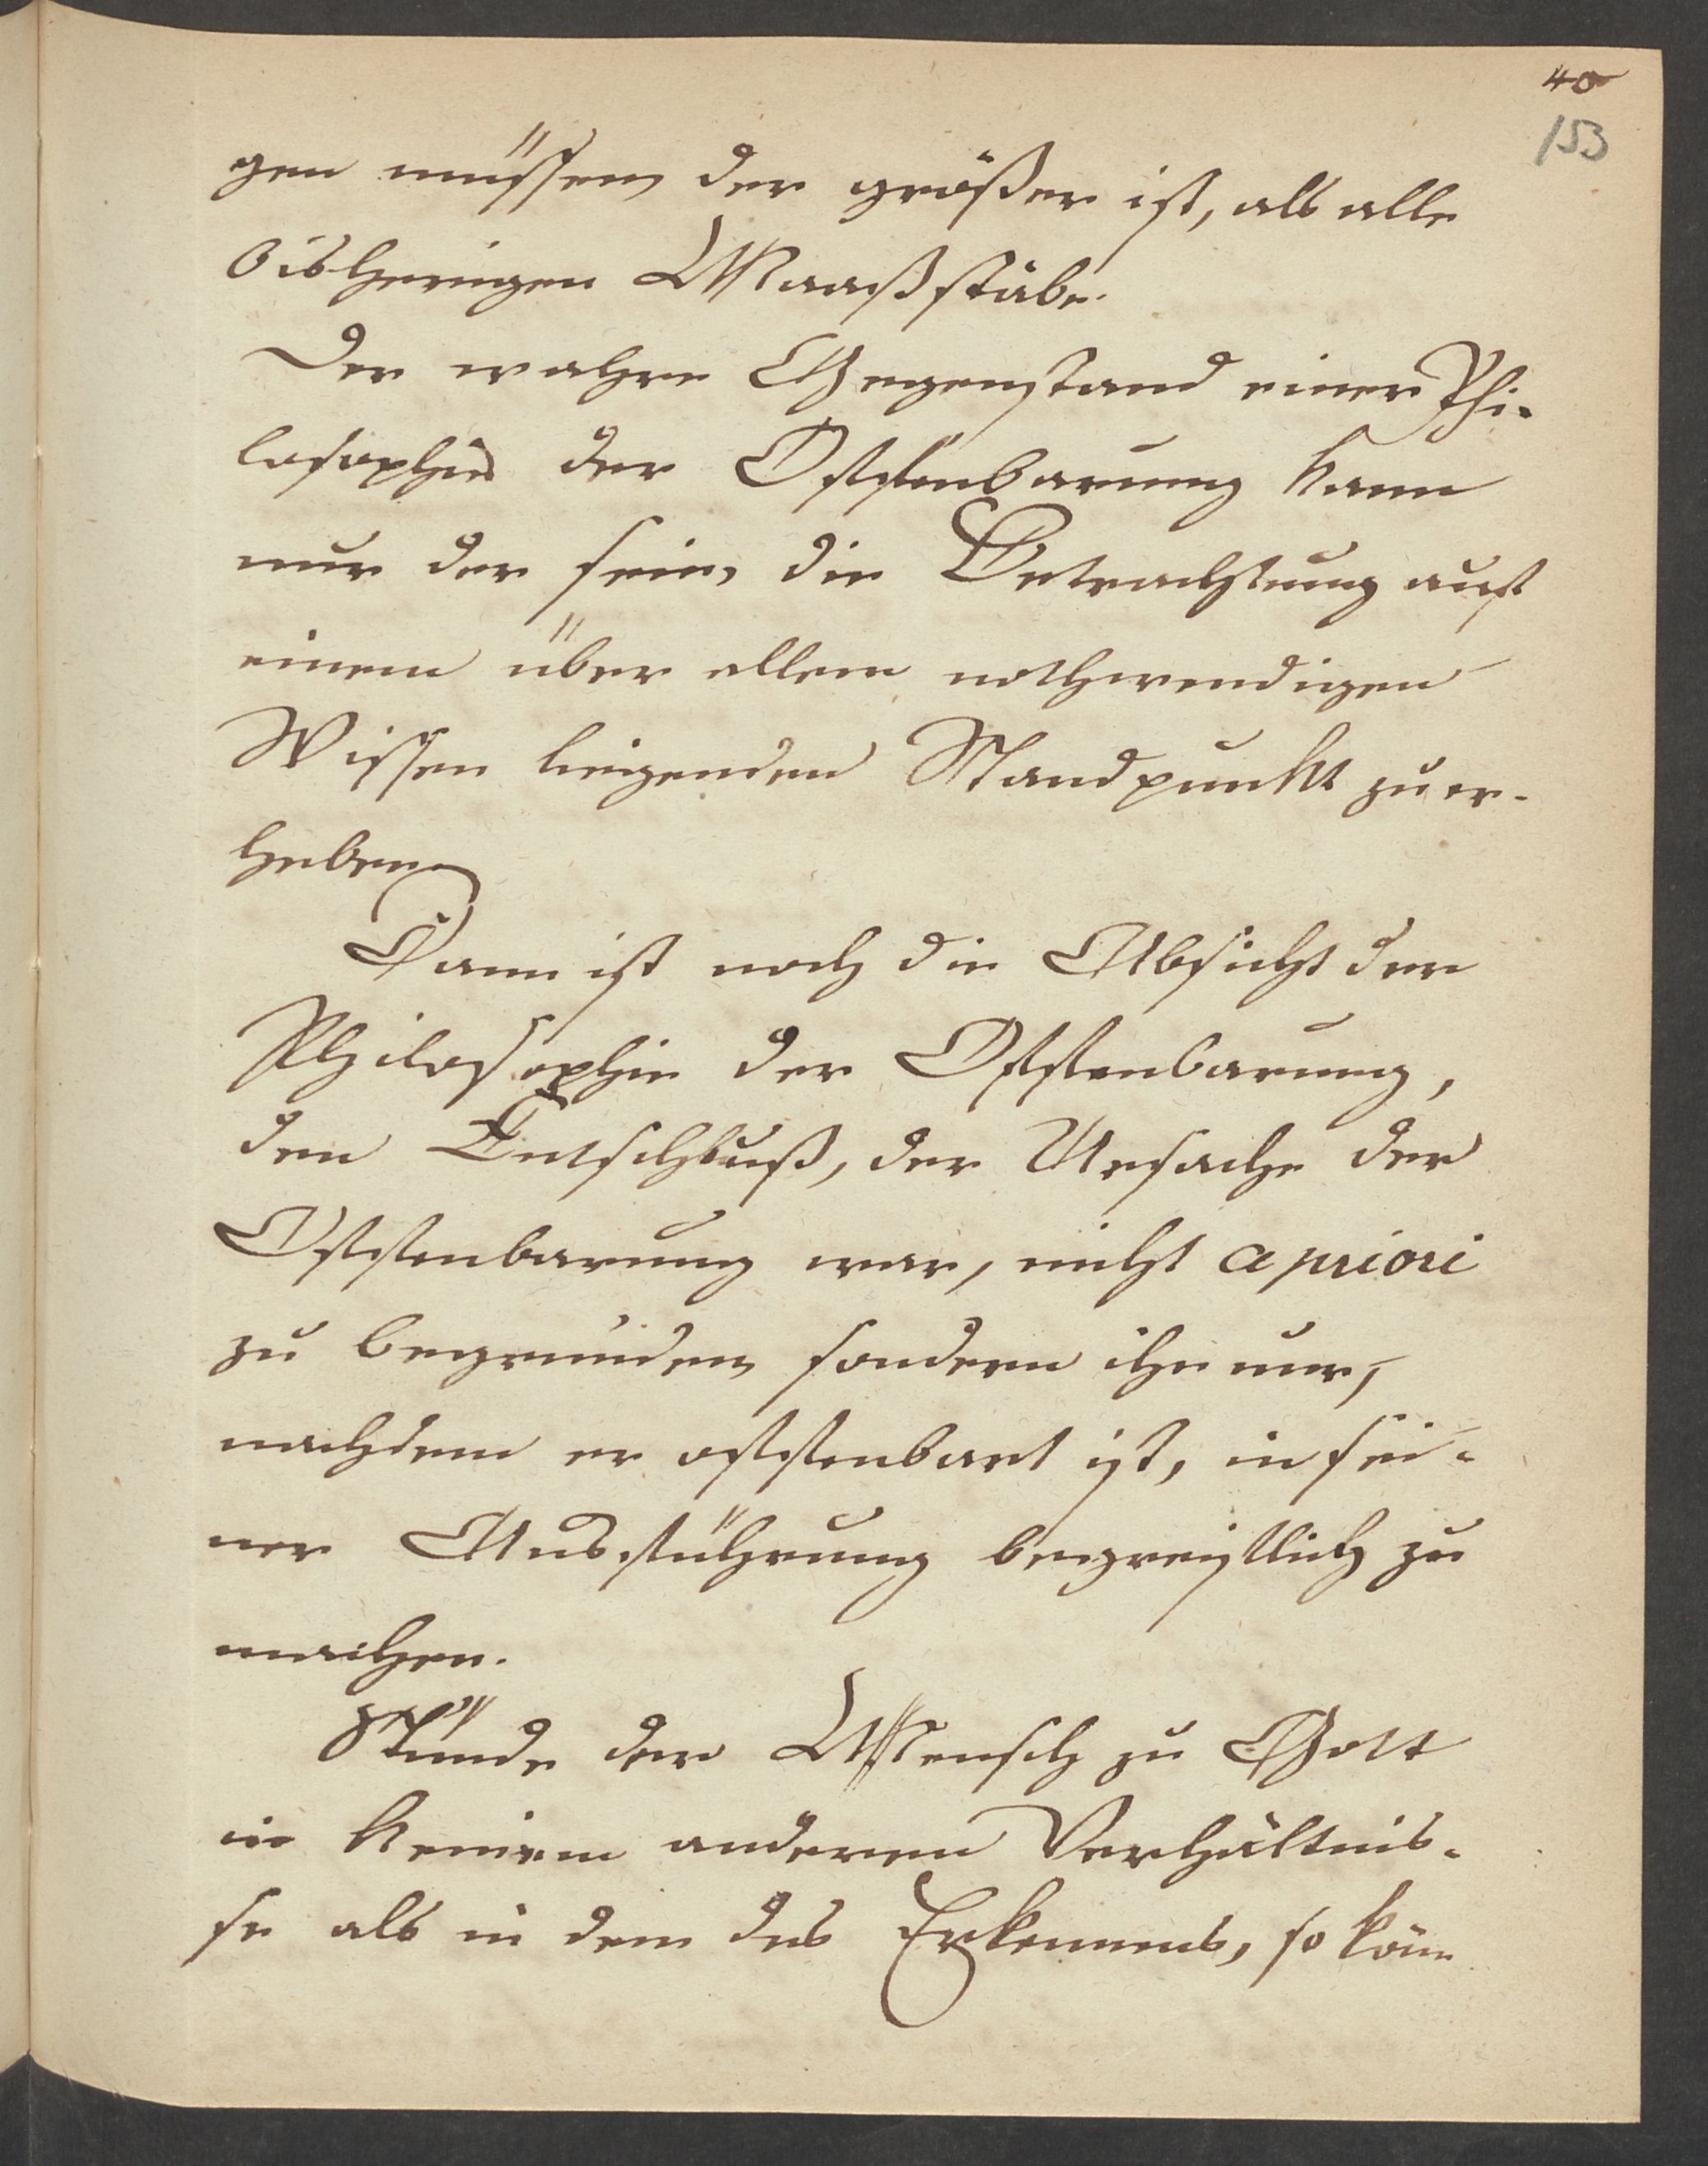 40
153
gen müssen, der größer ist, als alle
bisherigen Maaßstäbe.
Der wahre Gegenstand einer Phi-
losophie der Offenbarung kann
nur der sein, die Betrachtung auf
einem über allem nothwendigen
Wissen liegenden Standpunkt zu er-
heben.
Dann ist noch die Absicht der
Philosophie der Offenbarung,
den Entschluß, der Ursache der
Offenbarung war, nicht a priori
zu begründen, sondern ihn nur,
nachdem er offenbart ist, in sei-
ner Ausführung begreiflich zu
machen.
Stünde der Mensch zu Gott
in keinem anderen Verhältnis-
se als in dem des Erkennens, so kön-